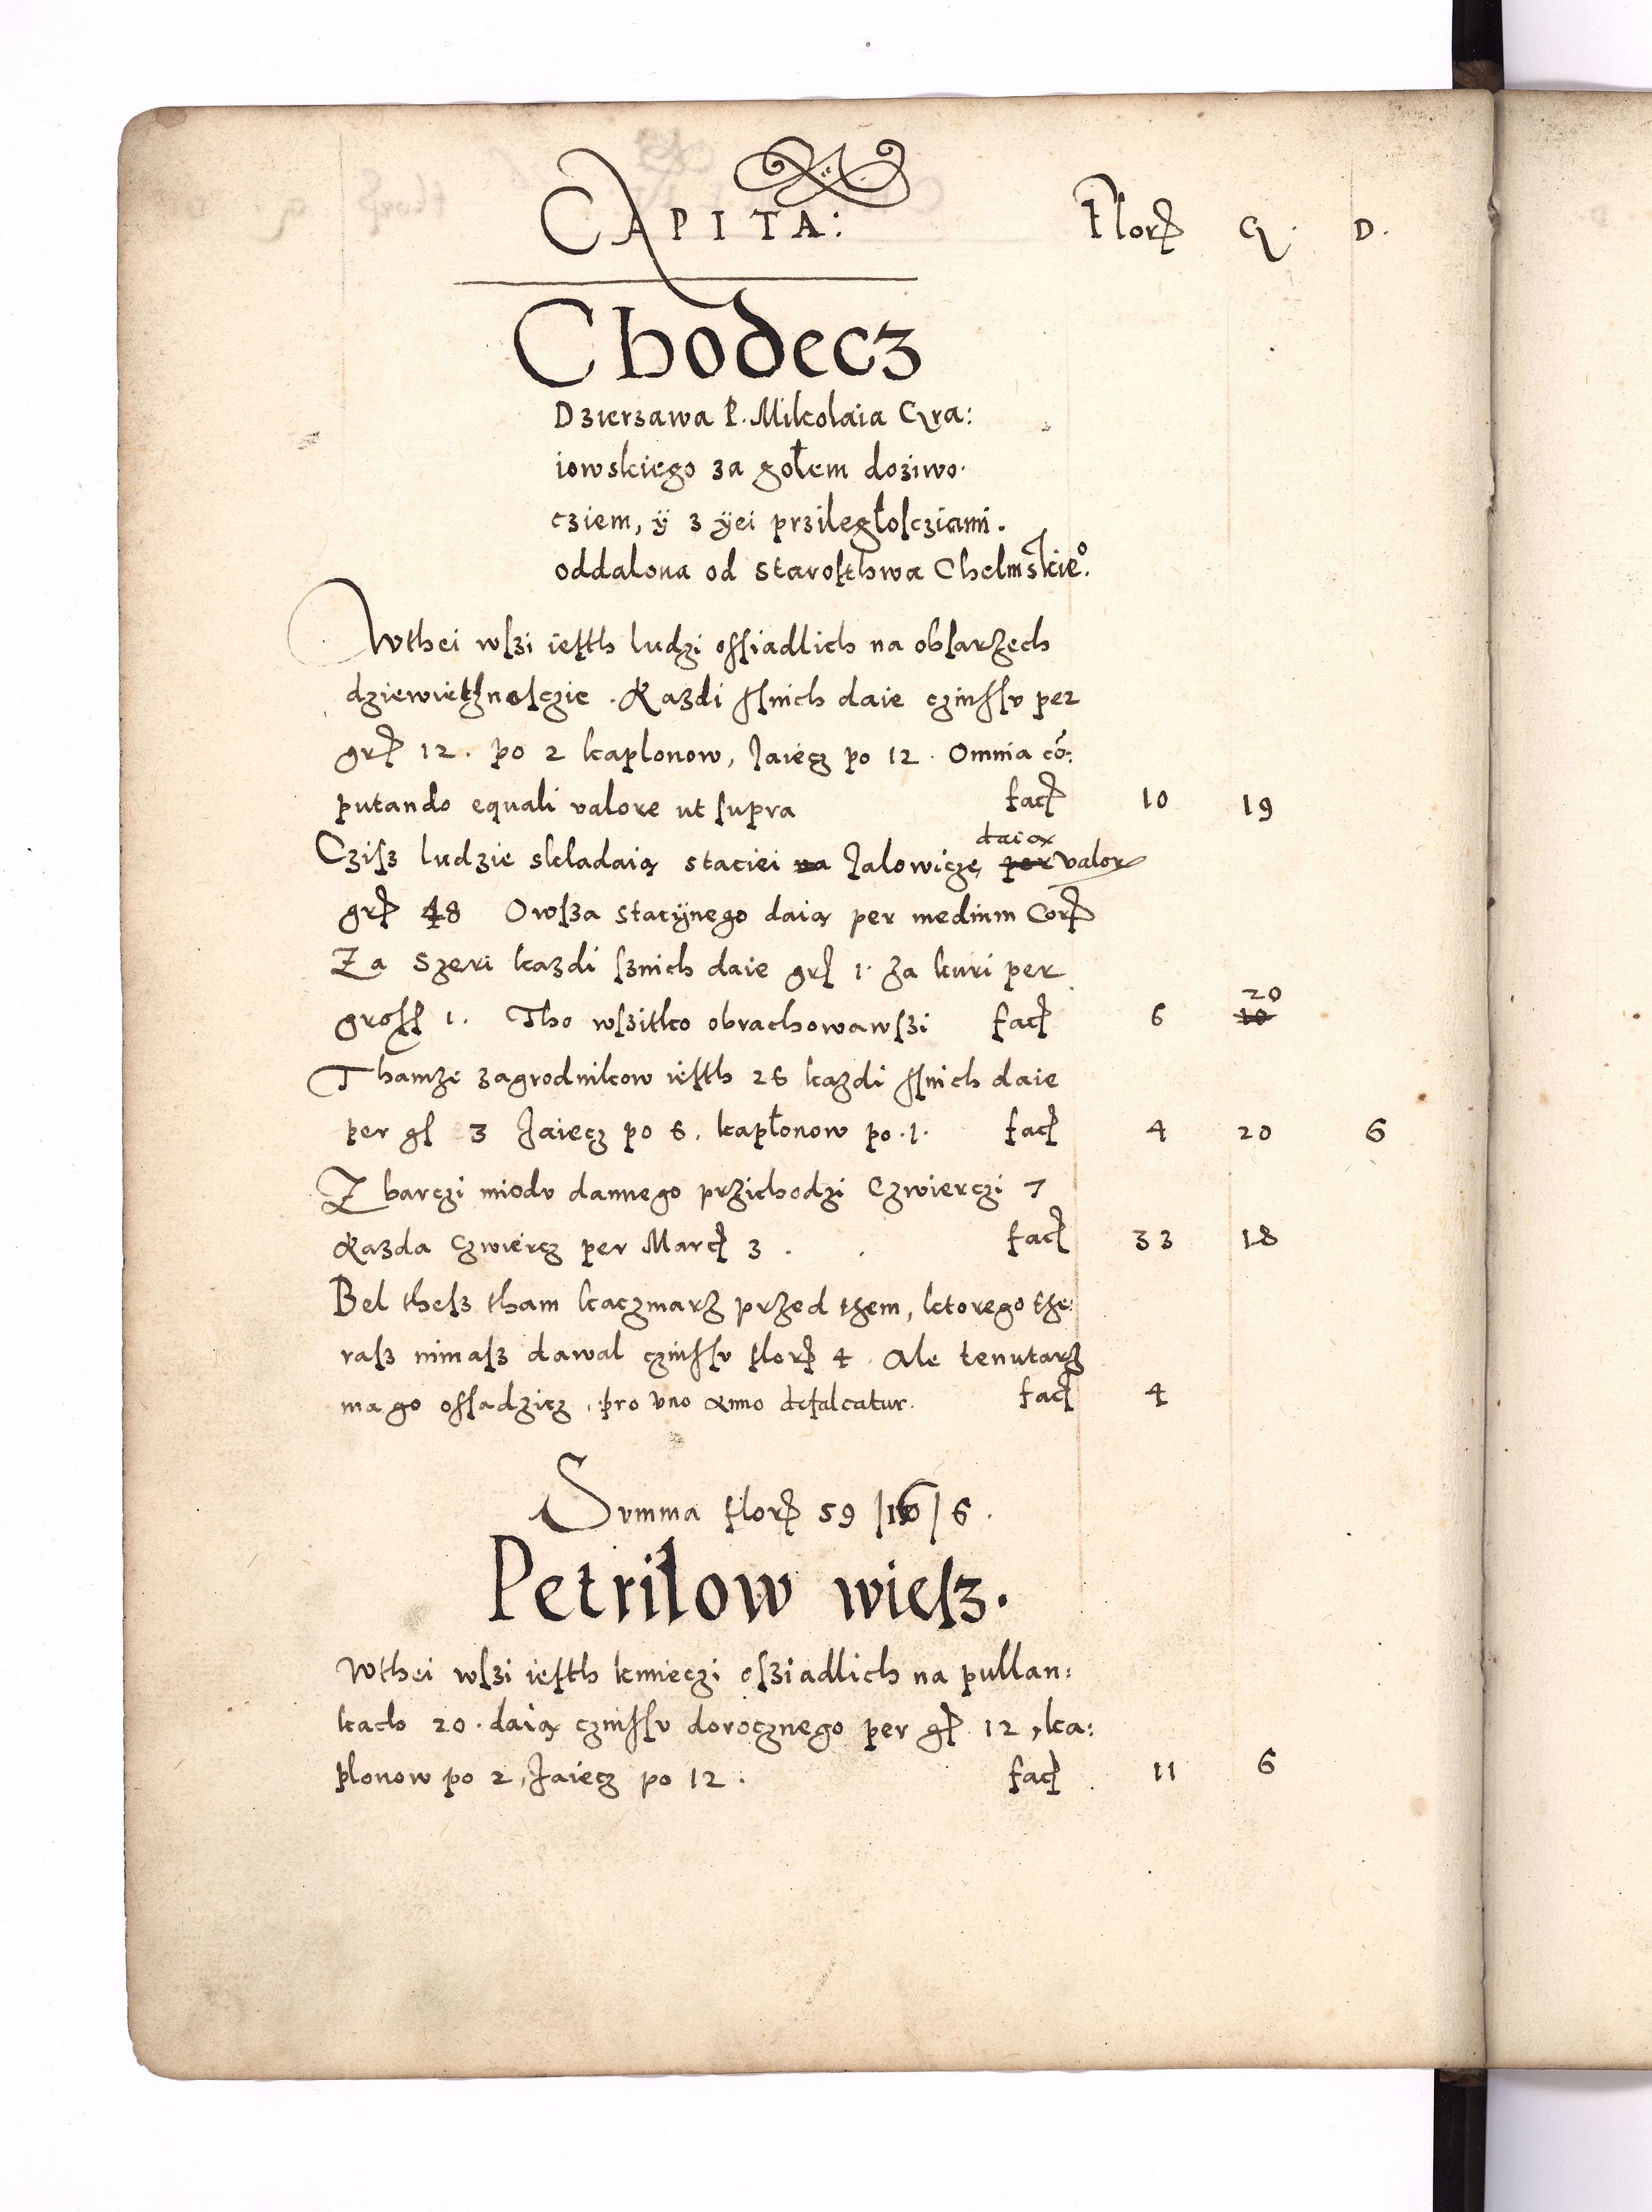 CAPITA: Flor. G. D.
Chodecz
Dzierzawa P. Mikolaia Gra:
iowskiego za gołem doziwo
cziem, ÿ z ÿei prziległoſcziami.
oddalona od staroſthwa Chelmskieº.
Wthei wſzi ieſtth ludzi oſſiadlich na obſarzech
dziewietznaſczie. Kazdi ſſnich daie czinſſv per
gr. 12. po 2 kaplonow, Jaiecz po 12. Omnia cō:
putando equali valore ut ſupra fac. 10 19
Cziſz ludzie składaią staciei na Jalowicze, per daiąc valor
gr. 48 Owſza stacÿnego daią per medium Cor.
Za Szeri kazdi ſznich daie gr. 1. za kuri per
groſſ. 1. Tho wſzitko obrachowawſzi fac. 6 10 20
Thamze zagrodnikow ieſth 26 kazdi ſſnich daie
per gr. 3 Jaiecz po 6. kapłonow po .1. fac. 4 20 6
Z barczi miodv dannego przichodzi Czwierczi 7
Kazda Czwiercz per Marc. 3. fac. 33 18
Bel theſz tham kaczmarz przed tzem, ktorego the:
raſz nimaſz dawal czinſſv flor. 4. Ale tenutarz
ma go oſſadzicz, pro vno anno defalcatur. fac. 4
Svmma flor. 59 | 16 | 6.
Petriłow wieſz.
Wthei wſzi ieſth kmieczi oſziadlich na pullan:
kach 20. daią czinſſv dorocznego per gr. 12, ka:
plonow po 2, Jaiecz po 12. fac. 11 6